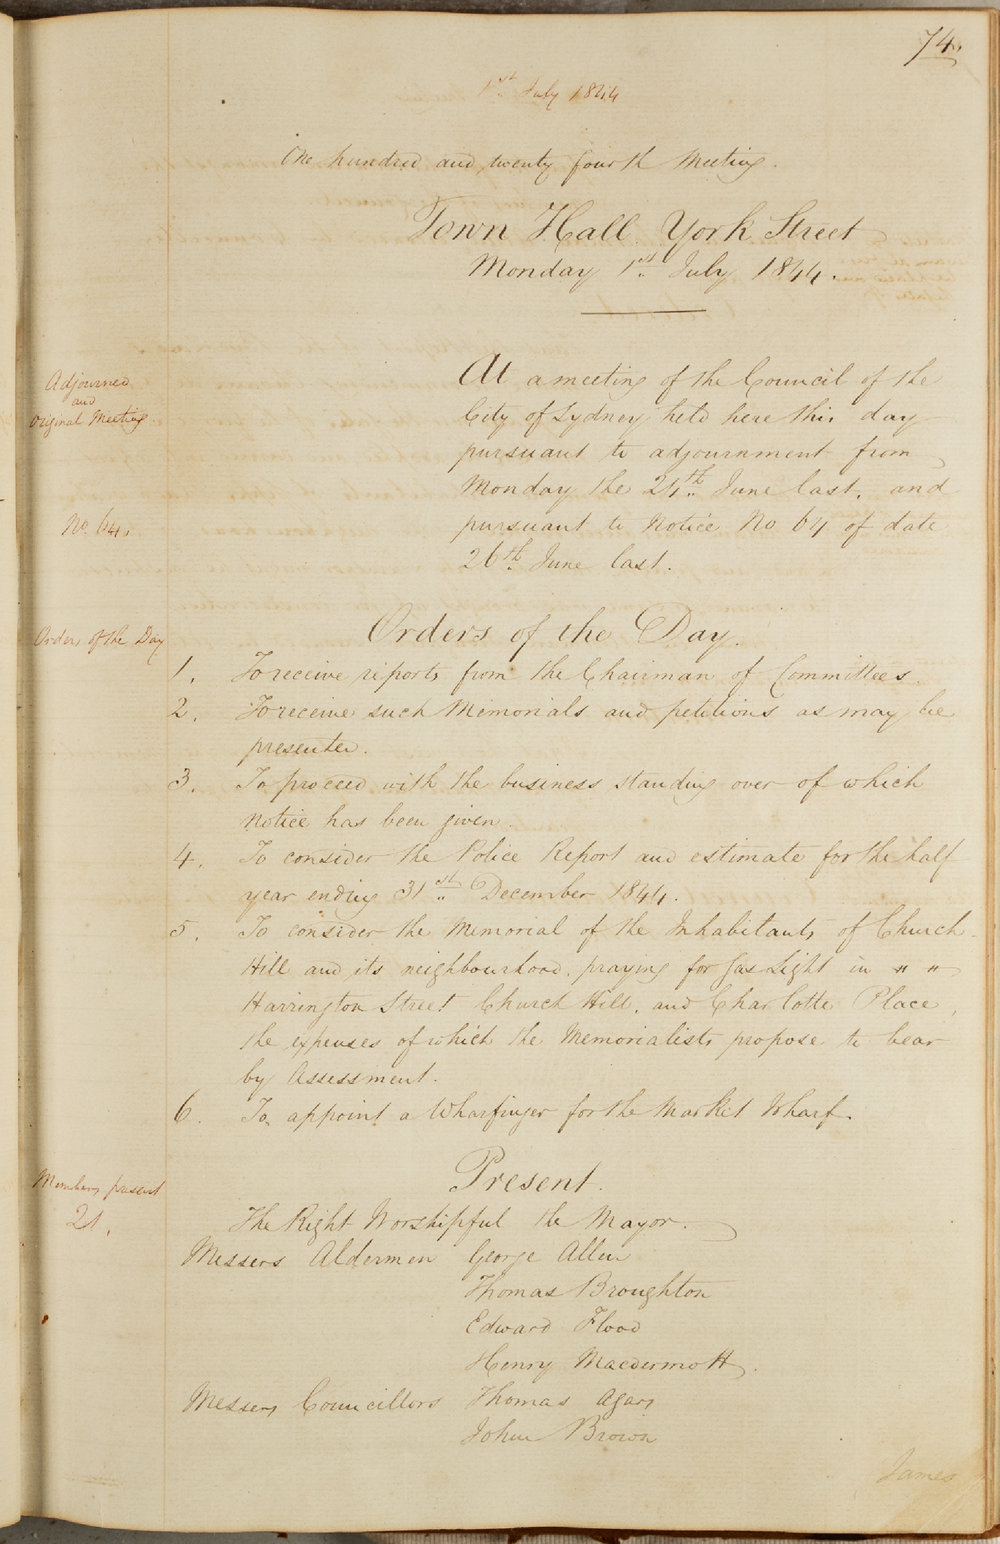 74.
1st July 1844
One hundred and twenty fourth Meeting.
Town Hall York Street
Monday 1st July 1844.
Adjourned
and
Original Meeting
At a meeting of the Council of the
City of Sydney held here this day
pursuant to adjournment from
Monday the 24th June last, and
No. 64.
pursuant to Notice No 64 of date
26th June last.
Orders of the Day
Orders of the Day.
1. To receive reports from the Chairman of Committees.
2. To receive such Memorials and petitions as may be
presented.
3. To proceed with the business standing over of which
notice has been given.
4. To consider the Police Report and estimate for the half
year ending 31st December 1844.
5. To consider the Memorial of the Inhabitants of Church
Hill and its neighbourhood, praying for Gas Light in " "
Harrington Street Church Hill, and Charlotte Place,
the expenses of which the Memorialists propose to bear
by Assessment.
6. To appoint a Wharfinger for the Market Wharf.
Members present
21.
Present.
The Right Worshipful the Mayor.
Messers Aldermen George Allen
Thomas Broughton
Edward Flood
Henry Macdermott.
Messers Councillors Thomas Agars
John Brown
James